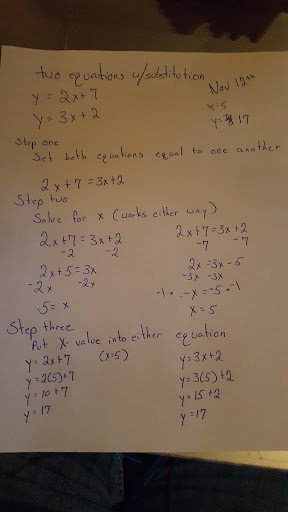 two equations w/substitution
Nov 12th
y = 2x+7
x=5
y = 3x+2
y= 17
Step one
Set both equations equal to one another
2x+7 = 3x+2
Step two
Solve for x (works either way)
2x+7 = 3x+2
-2 -2
2x+5 = 3x
-2x -2x
5 = x
2x+7 = 3x+2
-7 -7
2x = 3x - 5
-3x -3x
-1 • -x = -5 • -1
x = 5
Step three
Put x value into either equation
y = 2x+7 (x=5)
y = 2(5)+7
y = 10+7
y = 17
y = 3x+2
y = 3(5)+2
y = 15+2
y = 17